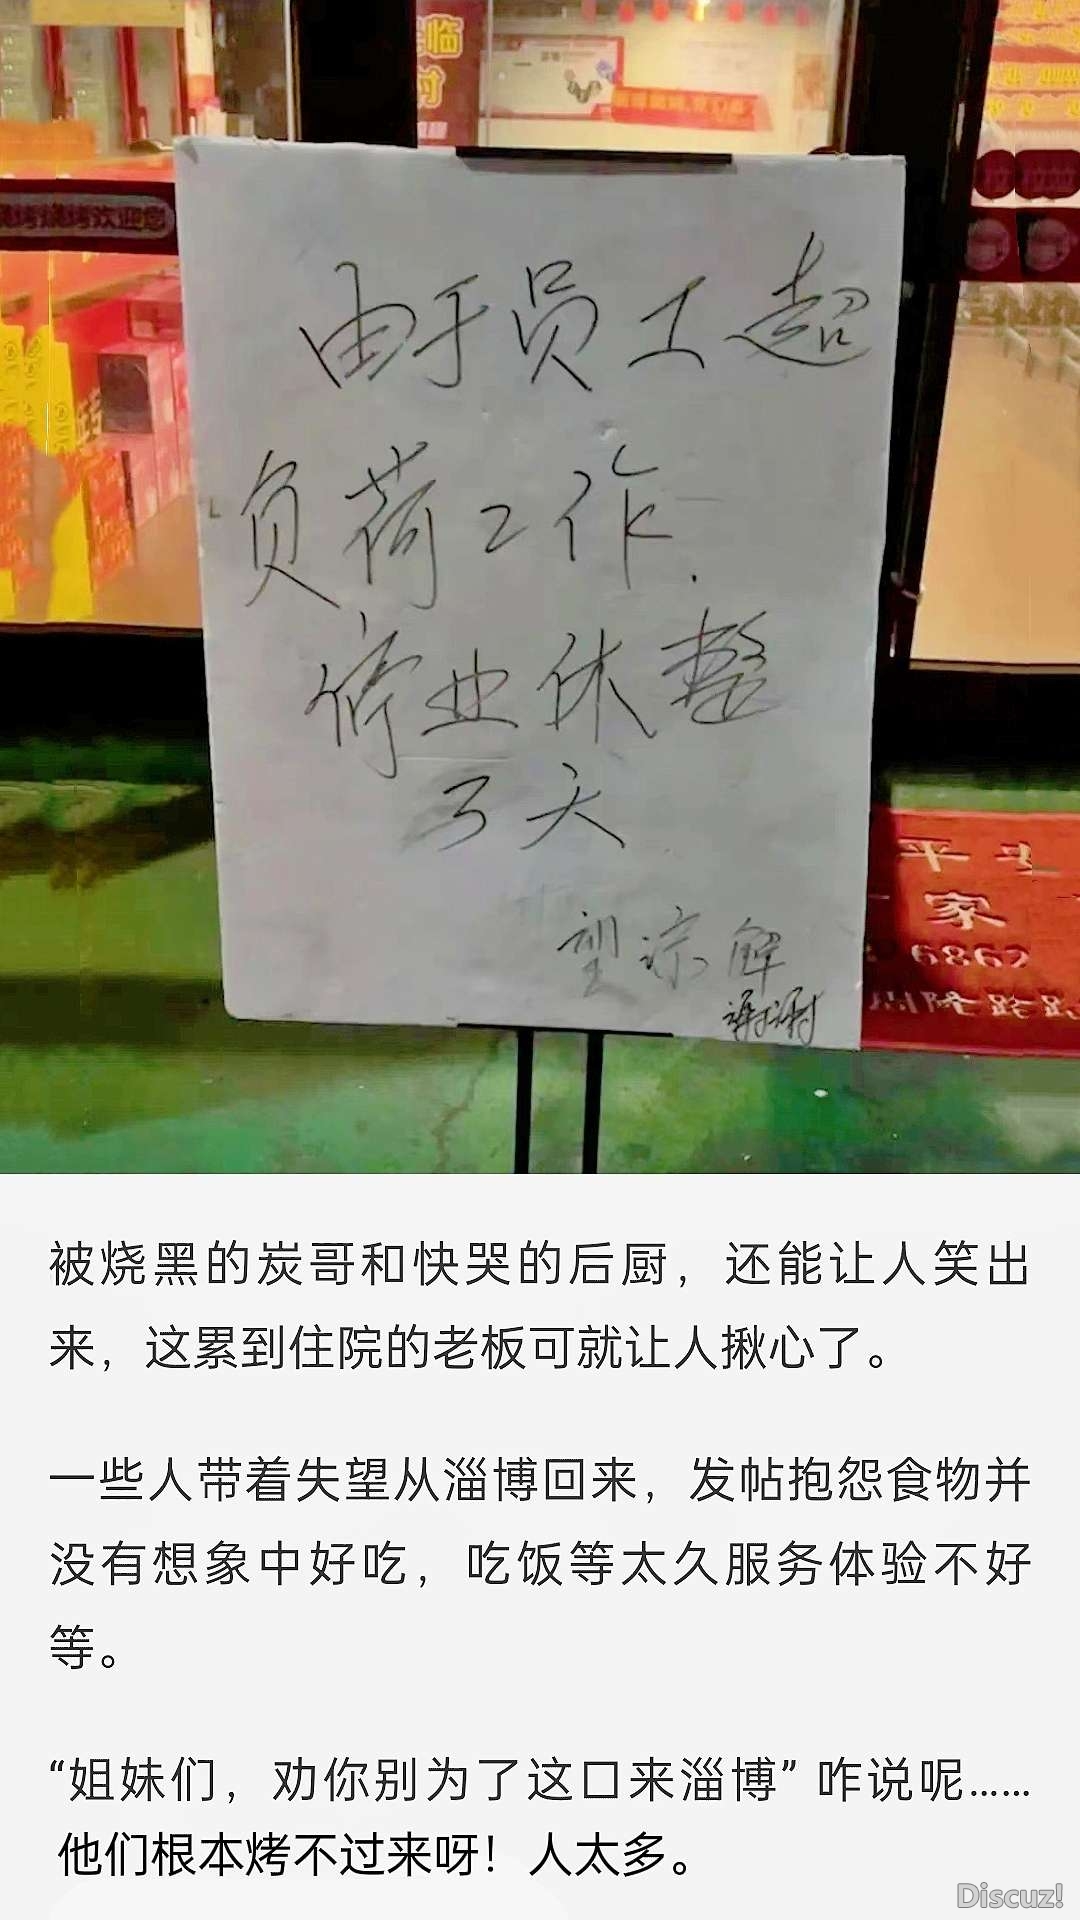 临
时
烧烤烧烤欢迎您
由于员工超
负荷工作.
停业休整
3天
望谅解
谢谢
平
家
6862
隆路
被烧黑的炭哥和快哭的后厨，还能让人笑出
来，这累到住院的老板可就让人揪心了。
一些人带着失望从淄博回来，发帖抱怨食物并
没有想象中好吃，吃饭等太久服务体验不好
等。
“姐妹们，劝你别为了这口来淄博” 咋说呢……
他们根本烤不过来呀！人太多。
Discuz!